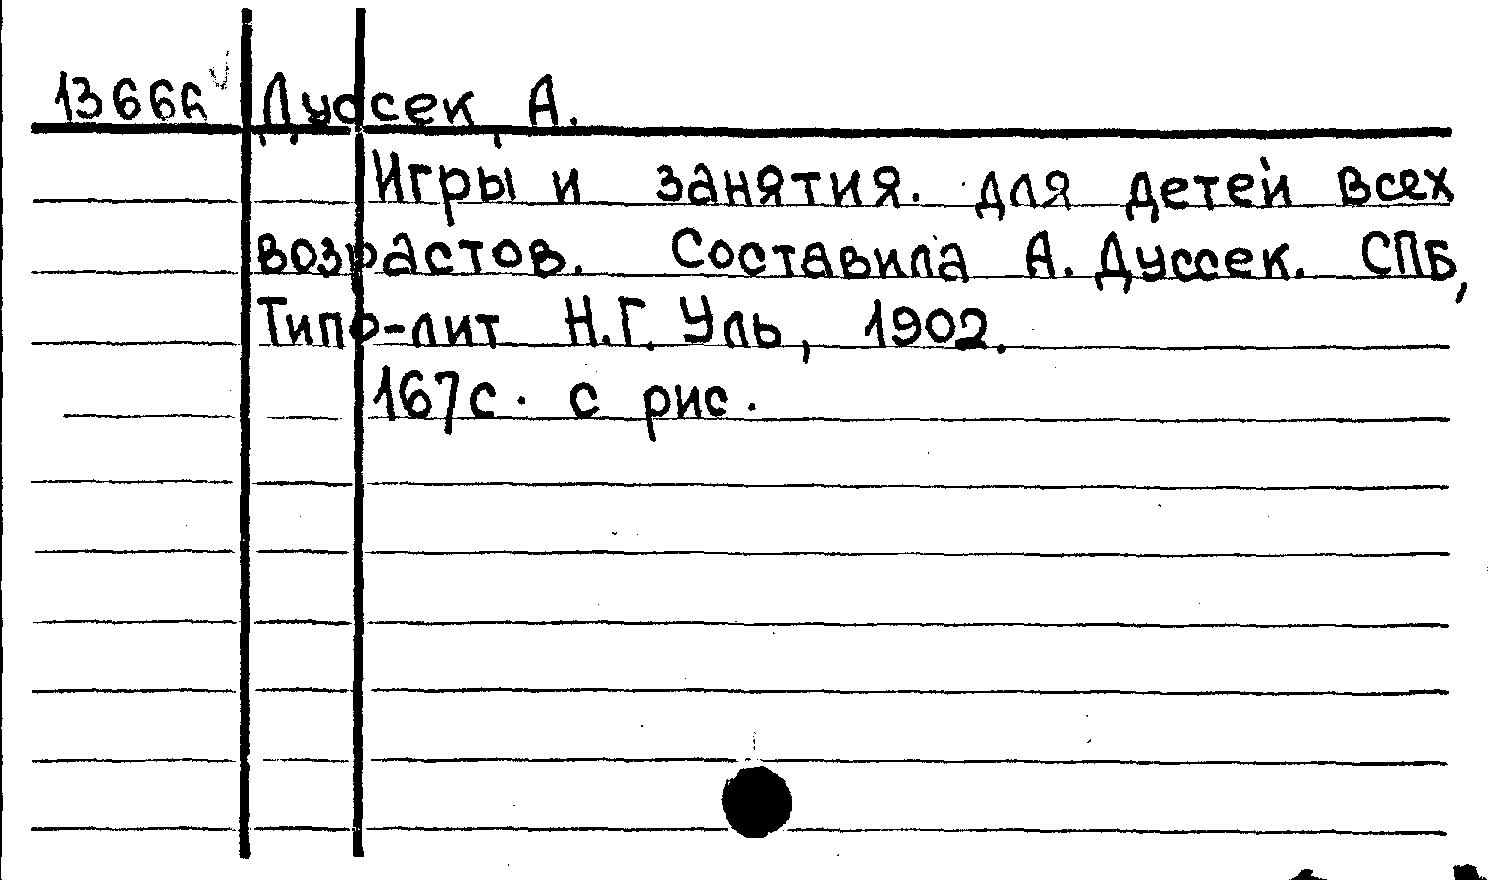 13666 Дуссек, А.
Игры и занятия. для детей всех
возрастов. Составила А. Дуссек. СПБ,
Типо-лит Н.Г. Уль, 1902.
167с. с рис.